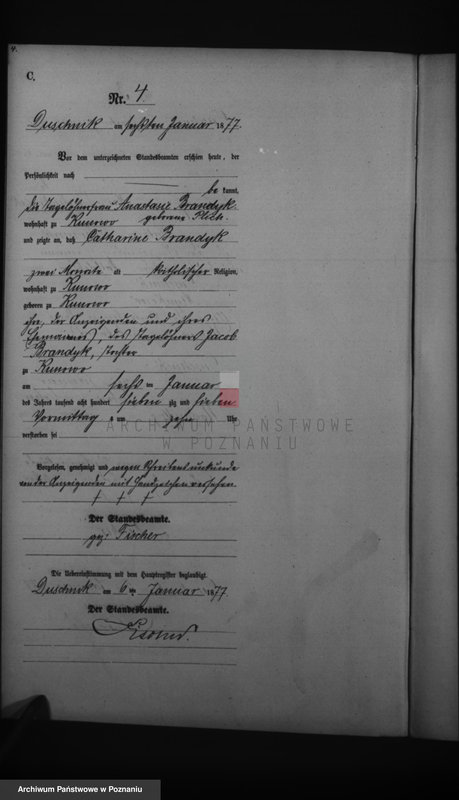 4.
C.
Nr. 4.
Duschnik am sechsten Januar 1877.
Vor dem unterzeichneten Standesbeamten erschien heute, der
Persönlichkeit nach
be kannt,
die Tagelöhnerfrau Anastasie Brandyk
geborene
wohnhaft zu Kunowo
und zeigte an, daß Catharine Brandyk
zwei Monate alt katholischer Religion,
wohnhaft zu Kunowo
geboren zu Kunowo
ihre, der Anzeigenden und ihres
Ehemannes, des Tagelöhners Jacob
Brandyk, Tochter
zu Kunowo
am sechs ten Januar
des Jahres tausend acht hundert sieben zig und sieben
Vormittag s um zehn Uhr
verstorben sei
ARCHIWUM PAŃSTWOWE
W POZNANIU
Vorgelesen, genehmigt und wegen Schreibensunkunde
von der Anzeigenden mit Handzeichen versehen.
† † †
Der Standesbeamte.
gez: Fischer
Die Uebereinstimmung mit dem Hauptregister beglaubigt.
Duschnik am 6ten Januar 1877.
Der Standesbeamte.
Archiwum Państwowe w Poznaniu